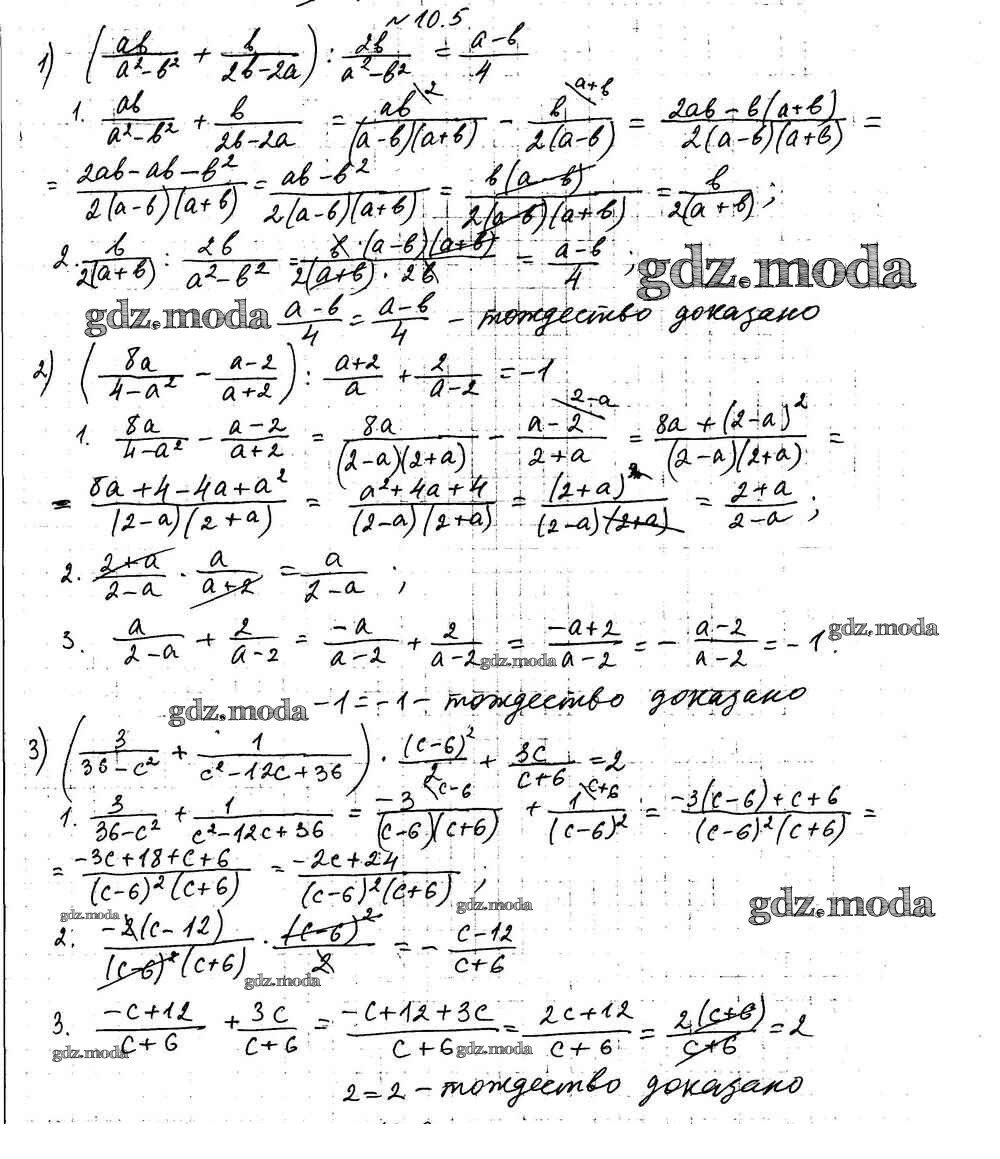 №10.5.
1) (ab/(a²-b²) + b/(2b-2a)) : 2b/(a²-b²) = (a-b)/4
1. ab/(a²-b²) + b/(2b-2a) = ab\2/((a-b)(a+b)) - b\a+b/(2(a-b)) = (2ab-b(a+b))/(2(a-b)(a+b)) =
= (2ab-ab-b²)/(2(a-b)(a+b)) = (ab-b²)/(2(a-b)(a+b)) = b(a-b)/(2(a-b)(a+b)) = b/(2(a+b)) ;
2. b/(2(a+b)) : 2b/(a²-b²) = b·(a-b)(a+b)/(2(a+b)·2b) = (a-b)/4 ;
gdz.moda
gdz.moda
(a-b)/4 = (a-b)/4 - тождество доказано
2) (8a/(4-a²) - (a-2)/(a+2)) : (a+2)/a + 2/(a-2) = -1
1. 8a/(4-a²) - (a-2)/(a+2) = 8a/((2-a)(2+a)) - (a-2)\2-a/(2+a) = (8a+(2-a)²)/((2-a)(2+a)) =
= (8a+4-4a+a²)/((2-a)(2+a)) = (a²+4a+4)/((2-a)(2+a)) = (2+a)²/((2-a)(2+a)) = (2+a)/(2-a) ;
2. (2+a)/(2-a) · a/(a+2) = a/(2-a) ;
3. a/(2-a) + 2/(a-2) = -a/(a-2) + 2/(a-2) = (-a+2)/(a-2) = - (a-2)/(a-2) = -1.
gdz.moda
gdz.moda
gdz.moda
-1=-1- тождество доказано
3) (3/(36-c²) + 1/(c²-12c+36)) · (c-6)²/2 + 3c/(c+6) = 2
1. 3/(36-c²) + 1/(c²-12c+36) = -3\c-6/((c-6)(c+6)) + 1\c+6/(c-6)² = (-3(c-6)+c+6)/((c-6)²(c+6)) =
= (-3c+18+c+6)/((c-6)²(c+6)) = (-2c+24)/((c-6)²(c+6)) ;
gdz.moda
gdz.moda
gdz.moda
2. -2(c-12)/((c-6)²(c+6)) · (c-6)²/2 = - (c-12)/(c+6)
gdz.moda
3. (-c+12)/(c+6) + 3c/(c+6) = (-c+12+3c)/(c+6) = (2c+12)/(c+6) = 2(c+6)/(c+6) = 2
gdz.moda
gdz.moda
2=2 - тождество доказано